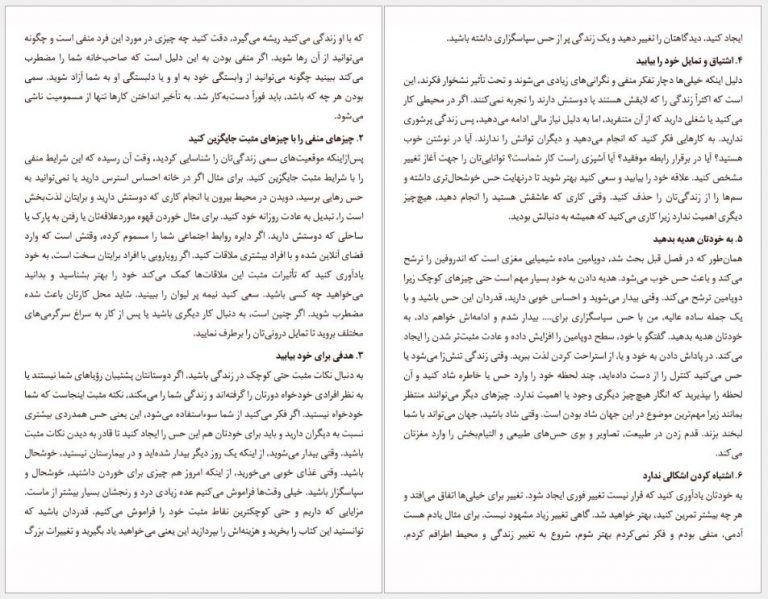 که با او زندگی می‌کنید ریشه می‌گیرد، دقت کنید چه چیزی در مورد این فرد منفی است و چگونه
می‌توانید از آن رها شوید. اگر منفی بودن به این دلیل است که صاحب‌خانه شما را مضطرب
می‌کند ببینید چگونه می‌توانید از وابستگی خود به او و یا دلبستگی او به شما آزاد شوید. سمی
بودن هر چه که باشد، باید فوراً دست‌به‌کار شد. به تأخیر انداختن کارها تنها از مسمومیت ناشی
می‌شود.
۲. چیزهای منفی را با چیزهای مثبت جایگزین کنید
پس‌ازاینکه موقعیت‌های سمی زندگی‌تان را شناسایی کردید، وقت آن رسیده که این شرایط منفی
را با شرایط مثبت جایگزین کنید. برای مثال اگر در خانه احساس استرس دارید یا نمی‌توانید به
حس رهایی برسید، دویدن در محیط بیرون یا انجام کاری که دوستش دارید و برایتان لذت‌بخش
است را، تبدیل به عادت روزانه خود کنید. برای مثال خوردن قهوه موردعلاقه‌تان یا رفتن به پارک یا
ساحلی که دوستش دارید. اگر دایره روابط اجتماعی شما را مسموم کرده، وقتش است که وارد
فضای آنلاین شده و با افراد بیشتری ملاقات کنید. اگر رویارویی با افراد برایتان سخت است، به خود
یادآوری کنید که تأثیرات مثبت این ملاقات‌ها کمک می‌کند خود را بهتر بشناسید و بدانید
می‌خواهید چه کسی باشید. سعی کنید نیمه پر لیوان را ببینید. شاید محل کارتان باعث شده
مضطرب شوید. اگر چنین است، به دنبال کار دیگری باشید یا پس از کار به سراغ سرگرمی‌های
مختلف بروید تا تمایل درونی‌تان را برطرف نمایید.
۳. هدفی برای خود بیابید
به دنبال نکات مثبت حتی کوچک در زندگی باشید. اگر دوستانتان پشتیبان رؤیاهای شما نیستند یا
به نظر افرادی خودخواه دورتان را گرفته‌اند و زندگی شما را می‌مکند، نکته مثبت اینجاست که شما
خودخواه نیستید. اگر فکر می‌کنید از شما سوءاستفاده می‌شود، این یعنی حس همدردی بیشتری
نسبت به دیگران دارید و باید برای خودتان هم این حس را ایجاد کنید تا قادر به دیدن نکات مثبت
باشید. وقتی بیدار می‌شوید، از اینکه یک روز دیگر بیدار شده‌اید و در بیمارستان نیستید، خوشحال
باشید. وقتی غذای خوبی می‌خورید، از اینکه امروز هم چیزی برای خوردن داشتید، خوشحال و
سپاسگزار باشید. خیلی وقت‌ها فراموش می‌کنیم عده زیادی درد و رنجشان بسیار بیشتر از ماست.
مزایایی که داریم و حتی کوچکترین نقاط مثبت خود را فراموش می‌کنیم. قدردان باشید که
توانستید این کتاب را بخرید و هزینه‌اش را بپردازید این یعنی می‌خواهید یاد بگیرید و تغییرات بزرگ
ایجاد کنید. دیدگاهتان را تغییر دهید و یک زندگی پر از حس سپاسگزاری داشته باشید.
۴. اشتیاق و تمایل خود را بیابید
دلیل اینکه خیلی‌ها دچار تفکر منفی و نگرانی‌های زیادی می‌شوند و تحت تأثیر نشخوار فکرند، این
است که اکثراً زندگی را که لایقش هستند یا دوستش دارند را تجربه نمی‌کنند. اگر در محیطی کار
می‌کنید یا شغلی دارید که از آن متنفرید، اما به دلیل نیاز مالی ادامه می‌دهید، پس زندگی پرشوری
ندارید. به کارهایی فکر کنید که انجام می‌دهید و دیگران توانش را ندارند. آیا در نوشتن خوب
هستید؟ آیا در برقرار رابطه موفقید؟ آیا آشپزی راست کار شماست؟ توانایی‌تان را جهت آغاز تغییر
مشخص کنید. علاقه خود را بیابید و سعی کنید بهتر شوید تا درنهایت حس خوشحال‌تری داشته و
سم‌ها را از زندگی‌تان را حذف کنید. وقتی کاری که عاشقش هستید را انجام دهید، هیچ‌چیز
دیگری اهمیت ندارد زیرا کاری می‌کنید که همیشه به دنبالش بودید.
۵. به خودتان هدیه بدهید
همان‌طور که در فصل قبل بحث شد، دوپامین ماده شیمیایی مغزی است که اندروفین را ترشح
می‌کند و باعث حس خوب می‌شود. هدیه دادن به خود بسیار مهم است حتی چیزهای کوچک زیرا
دوپامین ترشح می‌کند. وقتی بیدار می‌شوید و احساس خوبی دارید، قدردان این حس باشید و با
یک جمله ساده عالیه، من با حس سپاسگزاری برای.... بیدار شدم و ادامه‌اش خواهم داد، به
خودتان هدیه بدهید. گفتگو با خود، سطح دوپامین را افزایش داده و عادت مثبت‌تر شدن را ایجاد
می‌کند. در پاداش دادن به خود و یا، از استراحت کردن لذت ببرید. وقتی زندگی تنش‌زا می‌شود یا
حس می‌کنید کنترل را از دست داده‌اید، چند لحظه خود را وارد حس یا خاطره شاد کنید و آن
لحظه را بپذیرید که انگار هیچ‌چیز دیگری وجود یا اهمیت ندارد. چیزهای دیگر می‌توانند منتظر
بمانند زیرا مهم‌ترین موضوع در این جهان شاد بودن است. وقتی شاد باشید، جهان می‌تواند با شما
لبخند بزند. قدم زدن در طبیعت، تصاویر و بوی حس‌های طبیعی و التیام‌بخش را وارد مغزتان
می‌کند.
۶. اشتباه کردن اشکالی ندارد
به خودتان یادآوری کنید که قرار نیست تغییر فوری ایجاد شود. تغییر برای خیلی‌ها اتفاق می‌افتد و
هر چه بیشتر تمرین کنید، بهتر خواهید شد. گاهی تغییر زیاد مشهود نیست. برای مثال یادم هست
آدمی، منفی بودم و فکر نمی‌کردم بهتر شوم، شروع به تغییر زندگی و محیط اطرافم کردم.